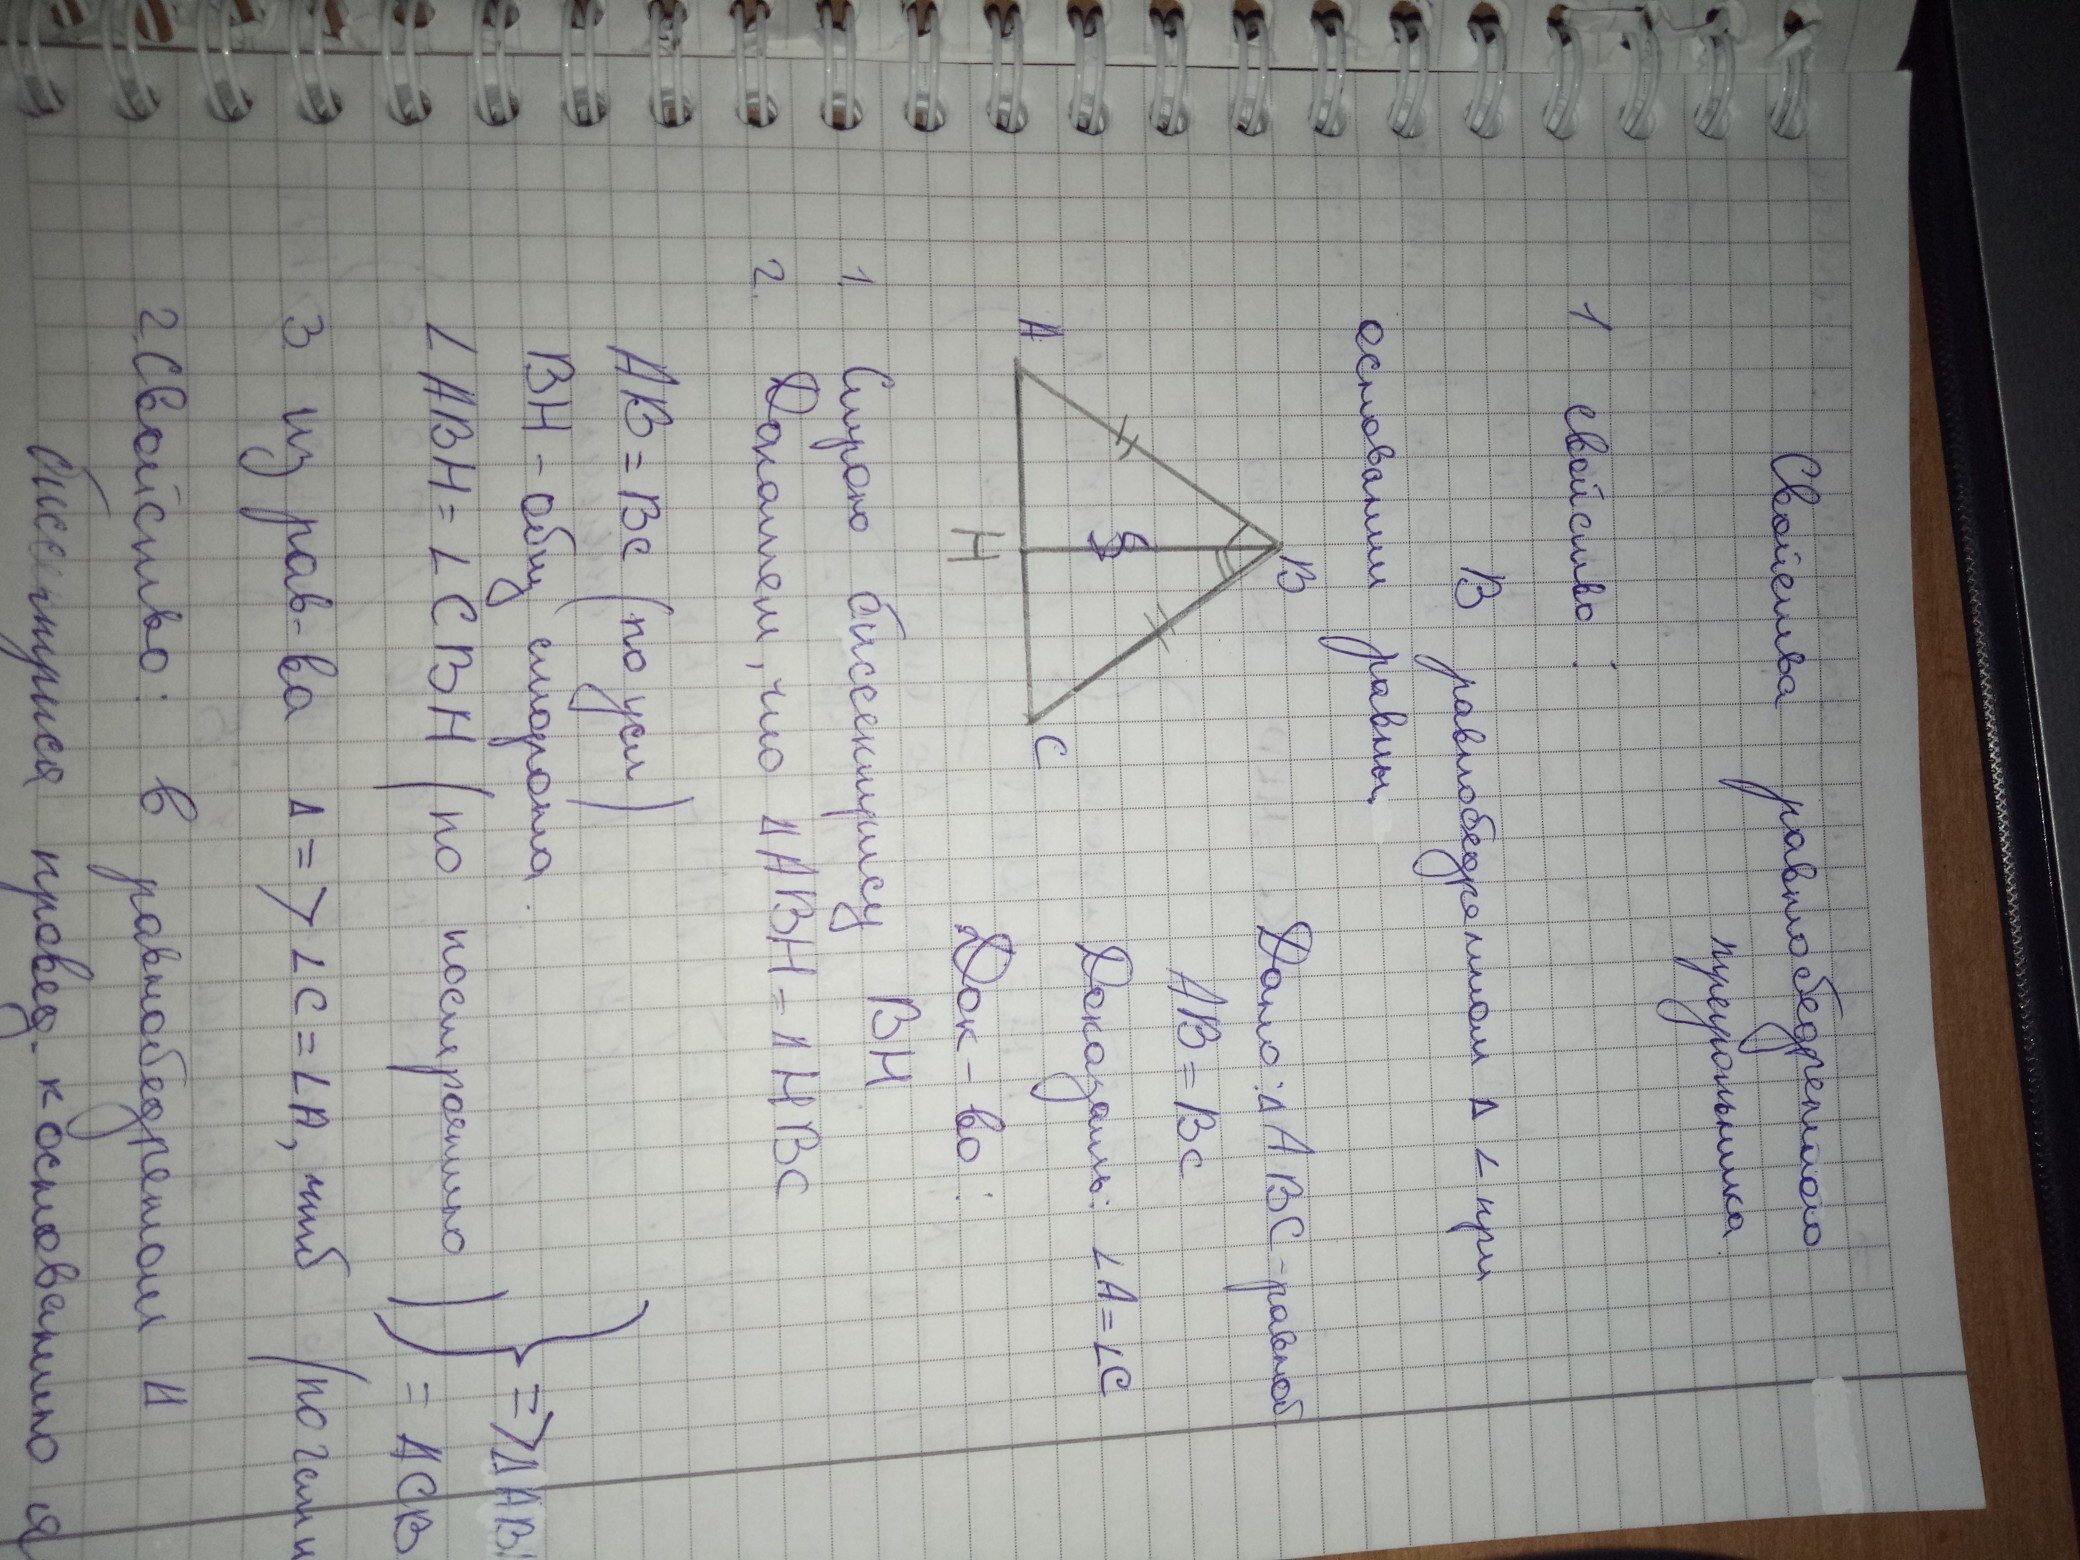 Свойства равнобедренного
треугольника.
1 свойство:
В равнобедренном Δ ∠ при
основании равны.
Дано: Δ ABC - равноб
AB = BC
Доказать: ∠A = ∠C
Док - во:
A
B
C
H
1. Строю биссектрису BH
2. Докажем, что Δ ABH = Δ HBC
AB = BC (по усл)
BH - общ сторона
∠ ABH = ∠ CBH (по построению)
=> Δ AB
= Δ CB
3. Из рав-ва Δ => ∠C = ∠A,
2. Свойство: в равнобедренном Δ
биссектриса провед. к основанию я